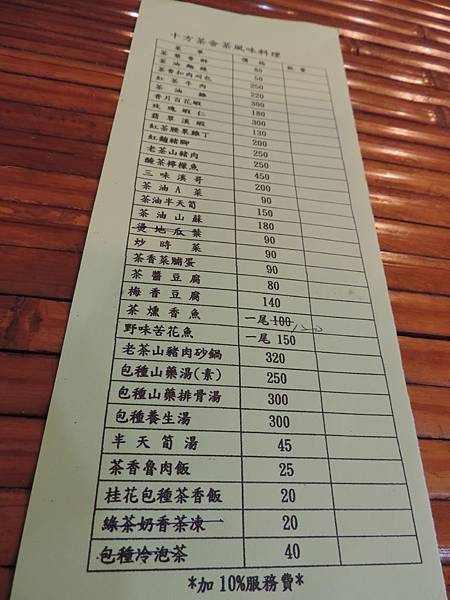 十方茶舍茶風味料理
菜單 價格 數量
茶葉香酥 80
茶油麵線 50
茶香扣肉刈包 250
紅茶牛肉 220
茶油雞 300
香片百花蝦 180
玫瑰蝦仁 300
翡翠溪蝦 130
紅茶腰果雞丁 200
紅麴豬腳 250
老茶山豬肉 250
酸茶檸檬魚 450
三味溪哥 200
茶油A菜 90
茶油半天筍 150
茶油山蘇 180
燙地瓜葉 90
炒時菜 90
茶香菜脯蛋 90
茶醬豆腐 80
梅香豆腐 140
茶燻香魚 一尾100
野味苦花魚 一尾 150
老茶山豬肉砂鍋 320
包種山藥湯(素) 250
包種山藥排骨湯 300
包種養生湯 300
半天筍湯 45
茶香魯肉飯 25
桂花包種茶香飯 20
綠茶奶香茶凍 20
包種冷泡茶 40
*加 10%服務費*